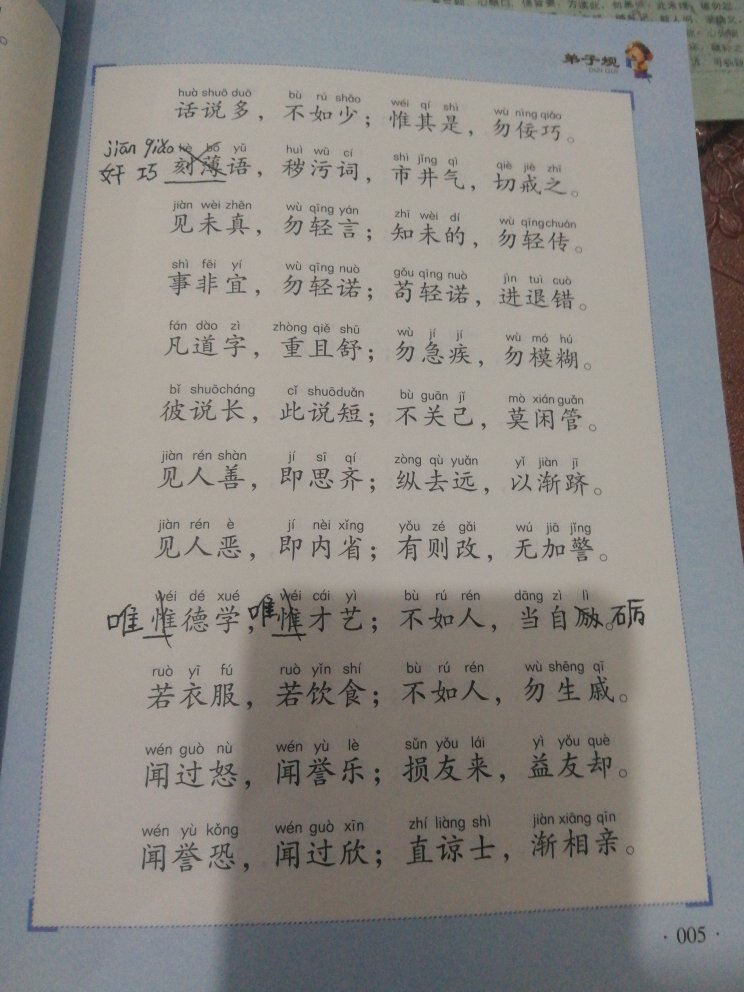 弟子规
huà shuō duō bù rú shǎo wéi qí shì wù nìng qiǎo
话说多，不如少；惟其是，勿佞巧。
jiān qiǎo kè bó yǔ huì wū cí shì jǐng qì qiè jiè zhī
奸巧 刻薄语，秽污词，市井气，切戒之。
jiàn wèi zhēn wù qīng yán zhī wèi dí wù qīng chuán
见未真，勿轻言；知未的，勿轻传。
shì fēi yí wù qīng nuò gǒu qīng nuò jìn tuì cuò
事非宜，勿轻诺；苟轻诺，进退错。
fán dào zì zhòng qiě shū wù jí jí wù mó hú
凡道字，重且舒；勿急疾，勿模糊。
bǐ shuō cháng cǐ shuō duǎn bù guān jǐ mò xián guǎn
彼说长，此说短；不关己，莫闲管。
jiàn rén shàn jí sī qí zòng qù yuǎn yǐ jiàn jī
见人善，即思齐；纵去远，以渐跻。
jiàn rén è jí nèi xǐng yǒu zé gǎi wú jiā jǐng
见人恶，即内省；有则改，无加警。
wéi dé xué wéi cái yì bù rú rén dāng zì lì
唯 惟德学，唯 惟才艺；不如人，当自励。砺
ruò yī fú ruò yǐn shí bù rú rén wù shēng qī
若衣服，若饮食；不如人，勿生戚。
wén guò nù wén yù lè sǔn yǒu lái yì yǒu què
闻过怒，闻誉乐；损友来，益友却。
wén yù kǒng wén guò xīn zhí liàng shì jiàn xiāng qīn
闻誉恐，闻过欣；直谅士，渐相亲。
·005·